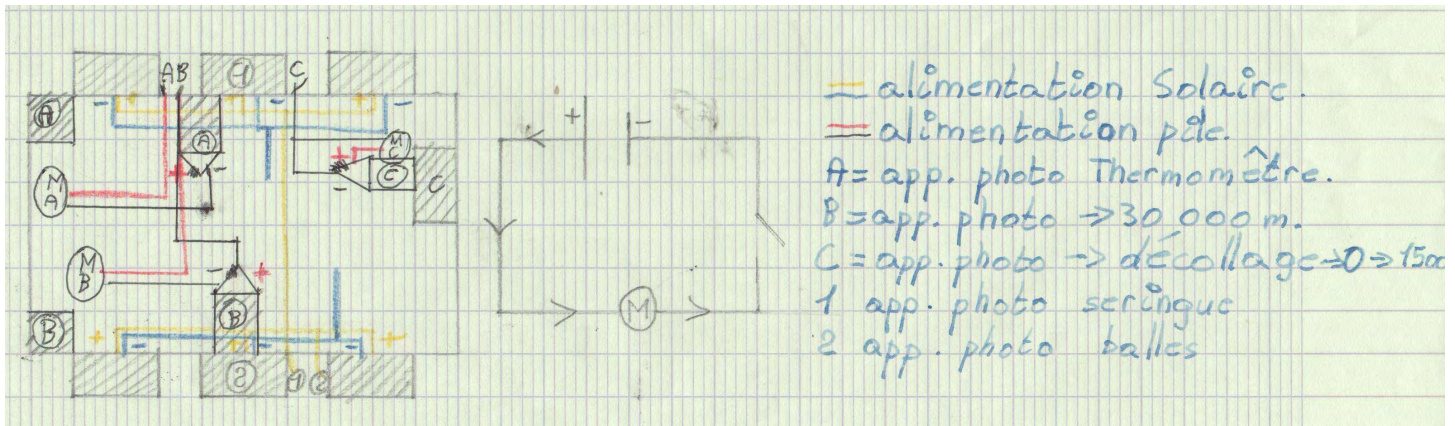 AB
1
C
+
-
+
-
+
-
A
A
M
C
+
-
C
C
M
A
+
-
+
-
M
B
-
+
B
B
+
-
-
+
-
2
1
2
+
-
M
= alimentation Solaire.
= alimentation pile.
A= app. photo Thermomêtre.
B=app. photo → 30 000 m.
C=app. photo → décollage→0→1500
1 app. photo seringue
2 app. photo balles